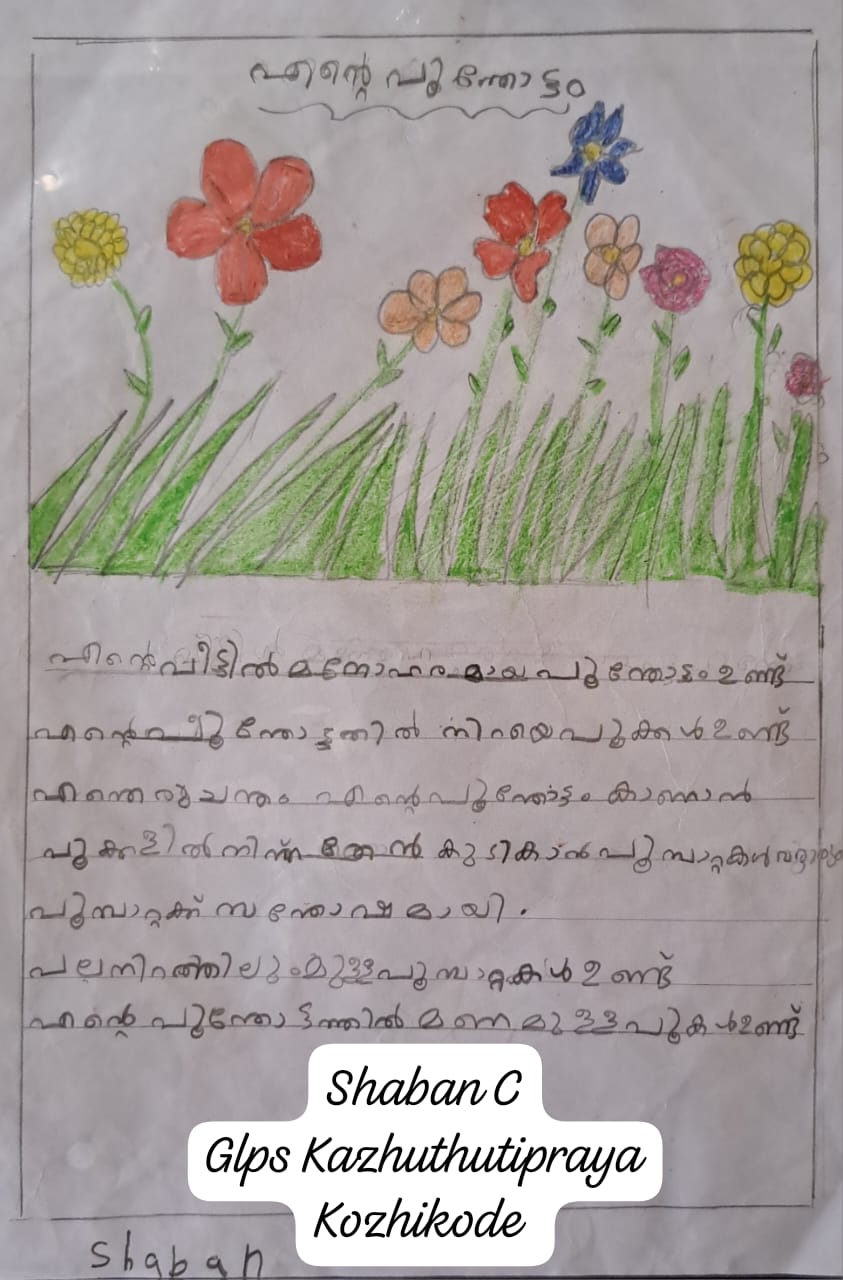 എന്റെ പൂന്തോട്ടം
എന്റെ വീട്ടിൽ മനോഹരമായ പൂന്തോട്ടം ഉണ്ട്
എന്റെ പൂന്തോട്ടത്തിൽ നിറയെ പൂക്കൾ ഉണ്ട്
എന്തൊരു ചന്തം എന്റെ പൂന്തോട്ടം കാണാൻ
പൂക്കളിൽ നിന്ന് തേൻ കുടികാൻ പൂമ്പാറ്റകൾ
പൂമ്പാറ്റക്ക് സന്തോഷമായി.
പലനിറത്തിലുംമുള്ള പൂമ്പാറ്റകൾ ഉണ്ട്
എന്റെ പൂന്തോട്ടത്തിൽ മണമുള്ള പൂകൾ ഉണ്ട്
Shaban C
Glps Kazhuthutipraya
Kozhikode
Shaban